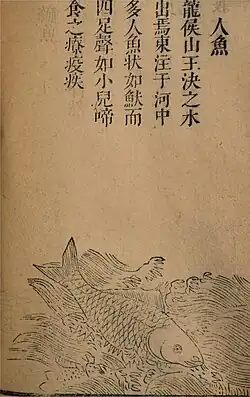 人魚
龍侯山王決之水
出焉東注于河中
多人魚狀如而
四足聲如小兒啼
食之療疫疾